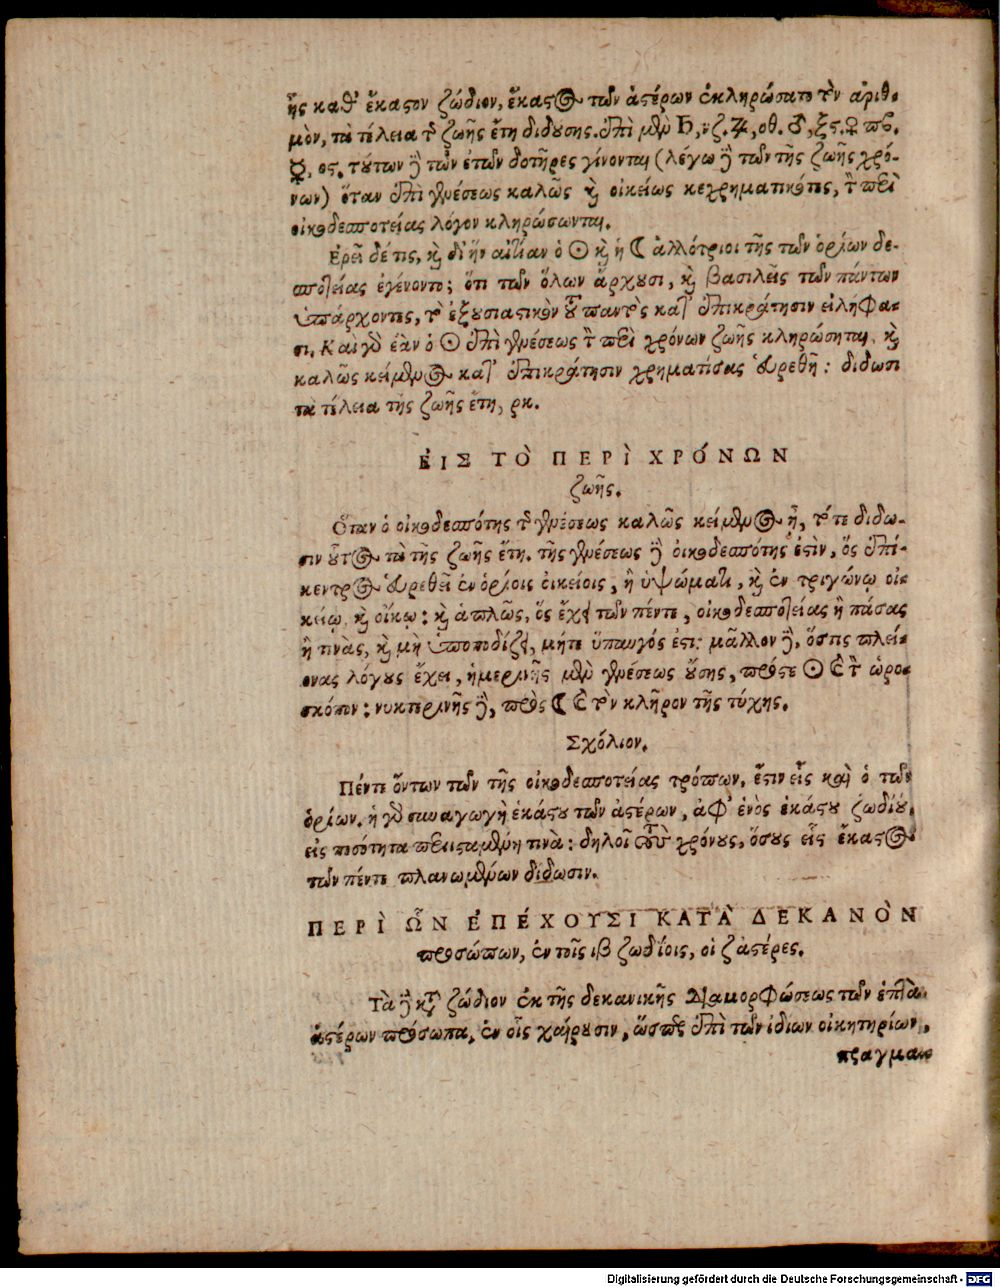 ἧς καθ' ἕκαστον ζώδιον, ἕκαστος τῶν ἀστέρων ἐκληρώσατο τὸν ἀριθ-
μὸν, τὰ τέλεια τῆς ζωῆς ἔτη διδούσης. ἐπὶ μὲν ♄, νζ. ♃, οθ. ♂, ξς. ♀ πβ.
☿, ος. τούτων δὲ τῶν ἐτῶν δοτῆρες γίνονται (λέγω δὲ τῶν τῆς ζωῆς χρό-
νων) ὅταν ἐπὶ γενέσεως καλῶς καὶ οἰκείως κεχρηματικότες, τὸν περὶ
οἰκοδεσποτείας λόγον κληρώσωνται.
Ἐρεῖ δέ τις, καὶ δι' ἣν αἰτίαν ὁ ☉ καὶ ἡ ☾ ἀλλότριοι τῆς τῶν ὁρίων δε-
σποτείας ἐγένοντο; ὅτι τῶν ὅλων ἄρχουσι, καὶ βασιλεῖς τῶν πάντων
ὑπάρχοντες, τὸ ἐξουσιαστικὸν τοῦ παντὸς κατ' ἐπικράτησιν εἰλήφα-
σι. Καὶ γὰρ ἐὰν ὁ ☉ ἐπὶ γενέσεως τὸν περὶ χρόνων ζωῆς κληρώσηται, καὶ
καλῶς κείμενος κατ' ἐπικράτησιν χρηματίσας εὑρεθῇ: δίδωσι
τὰ τέλεια τῆς ζωῆς ἔτη, ρκ.
ΕἸΣ ΤῸ ΠΕΡῚ ΧΡΌΝΩΝ
ζωῆς.
Ὅταν ὁ οἰκοδεσπότης τῆς γενέσεως καλῶς κείμενος ᾖ, τότε δίδω-
σιν οὗτος τὰ τῆς ζωῆς ἔτη. τῆς γενέσεως δὲ οἰκοδεσπότης ἐστὶν, ὃς ἐπί-
κεντρος εὑρεθεῖ ἐν ὁρίοις οἰκείοις, ἢ ὑψώματι, καὶ ἐν τριγώνῳ οἰ-
κείῳ, καὶ οἴκῳ: καὶ ἁπλῶς, ὃς ἔχει τῶν πέντε, οἰκοδεσποτείας ἢ πάσας
ἢ τινὰς, καὶ μὴ ὑποποδίζει, μήτε ὕπαυγός ἐστι: μᾶλλον δὲ, ὅστις πλεί-
ονας λόγους ἔχει, ἡμερινῆς μὲν γενέσεως οὔσης, πρός τε ☉ καὶ τὸν ὡρο-
σκόπον: νυκτερινῆς δὲ, πρὸς ☾ καὶ τὸν κλῆρον τῆς τύχης.
Σχόλιον.
Πέντε ὄντων τῶν τῆς οἰκοδεσποτείας τρόπων, ἔστιν εἷς καὶ ὁ τῶν
ὁρίων. ἡ γὰρ συναγωγὴ ἑκάστου τῶν ἀστέρων, ἀφ' ἑνὸς ἑκάστου ζωδίου,
εἰς ποσότητα περιισταμένη τινὰ: δηλοῖ τοὺς χρόνους, ὅσους εἷς ἕκαστος
τῶν πέντε πλανωμένων δίδωσιν.
ΠΕΡῚ ὯΝ ἘΠΈΧΟΥΣΙ ΚΑΤᾺ ΔΕΚΑΝῸΝ
προσώπων, ἐν τοῖς ιβ ζωδίοις, οἱ ζ ἀστέρες.
Τὰ δὲ κατὰ ζώδιον ἐκ τῆς δεκανικῆς διαμορφώσεως τῶν ἑπτὰ
ἀστέρων πρόσωπα, ἐν οἷς χαίρουσιν, ὥσπερ ἐπὶ τῶν ἰδίων οἰκητηρίων,
πραγμα-
Digitalisierung gefördert durch die Deutsche Forschungsgemeinschaft - DFG